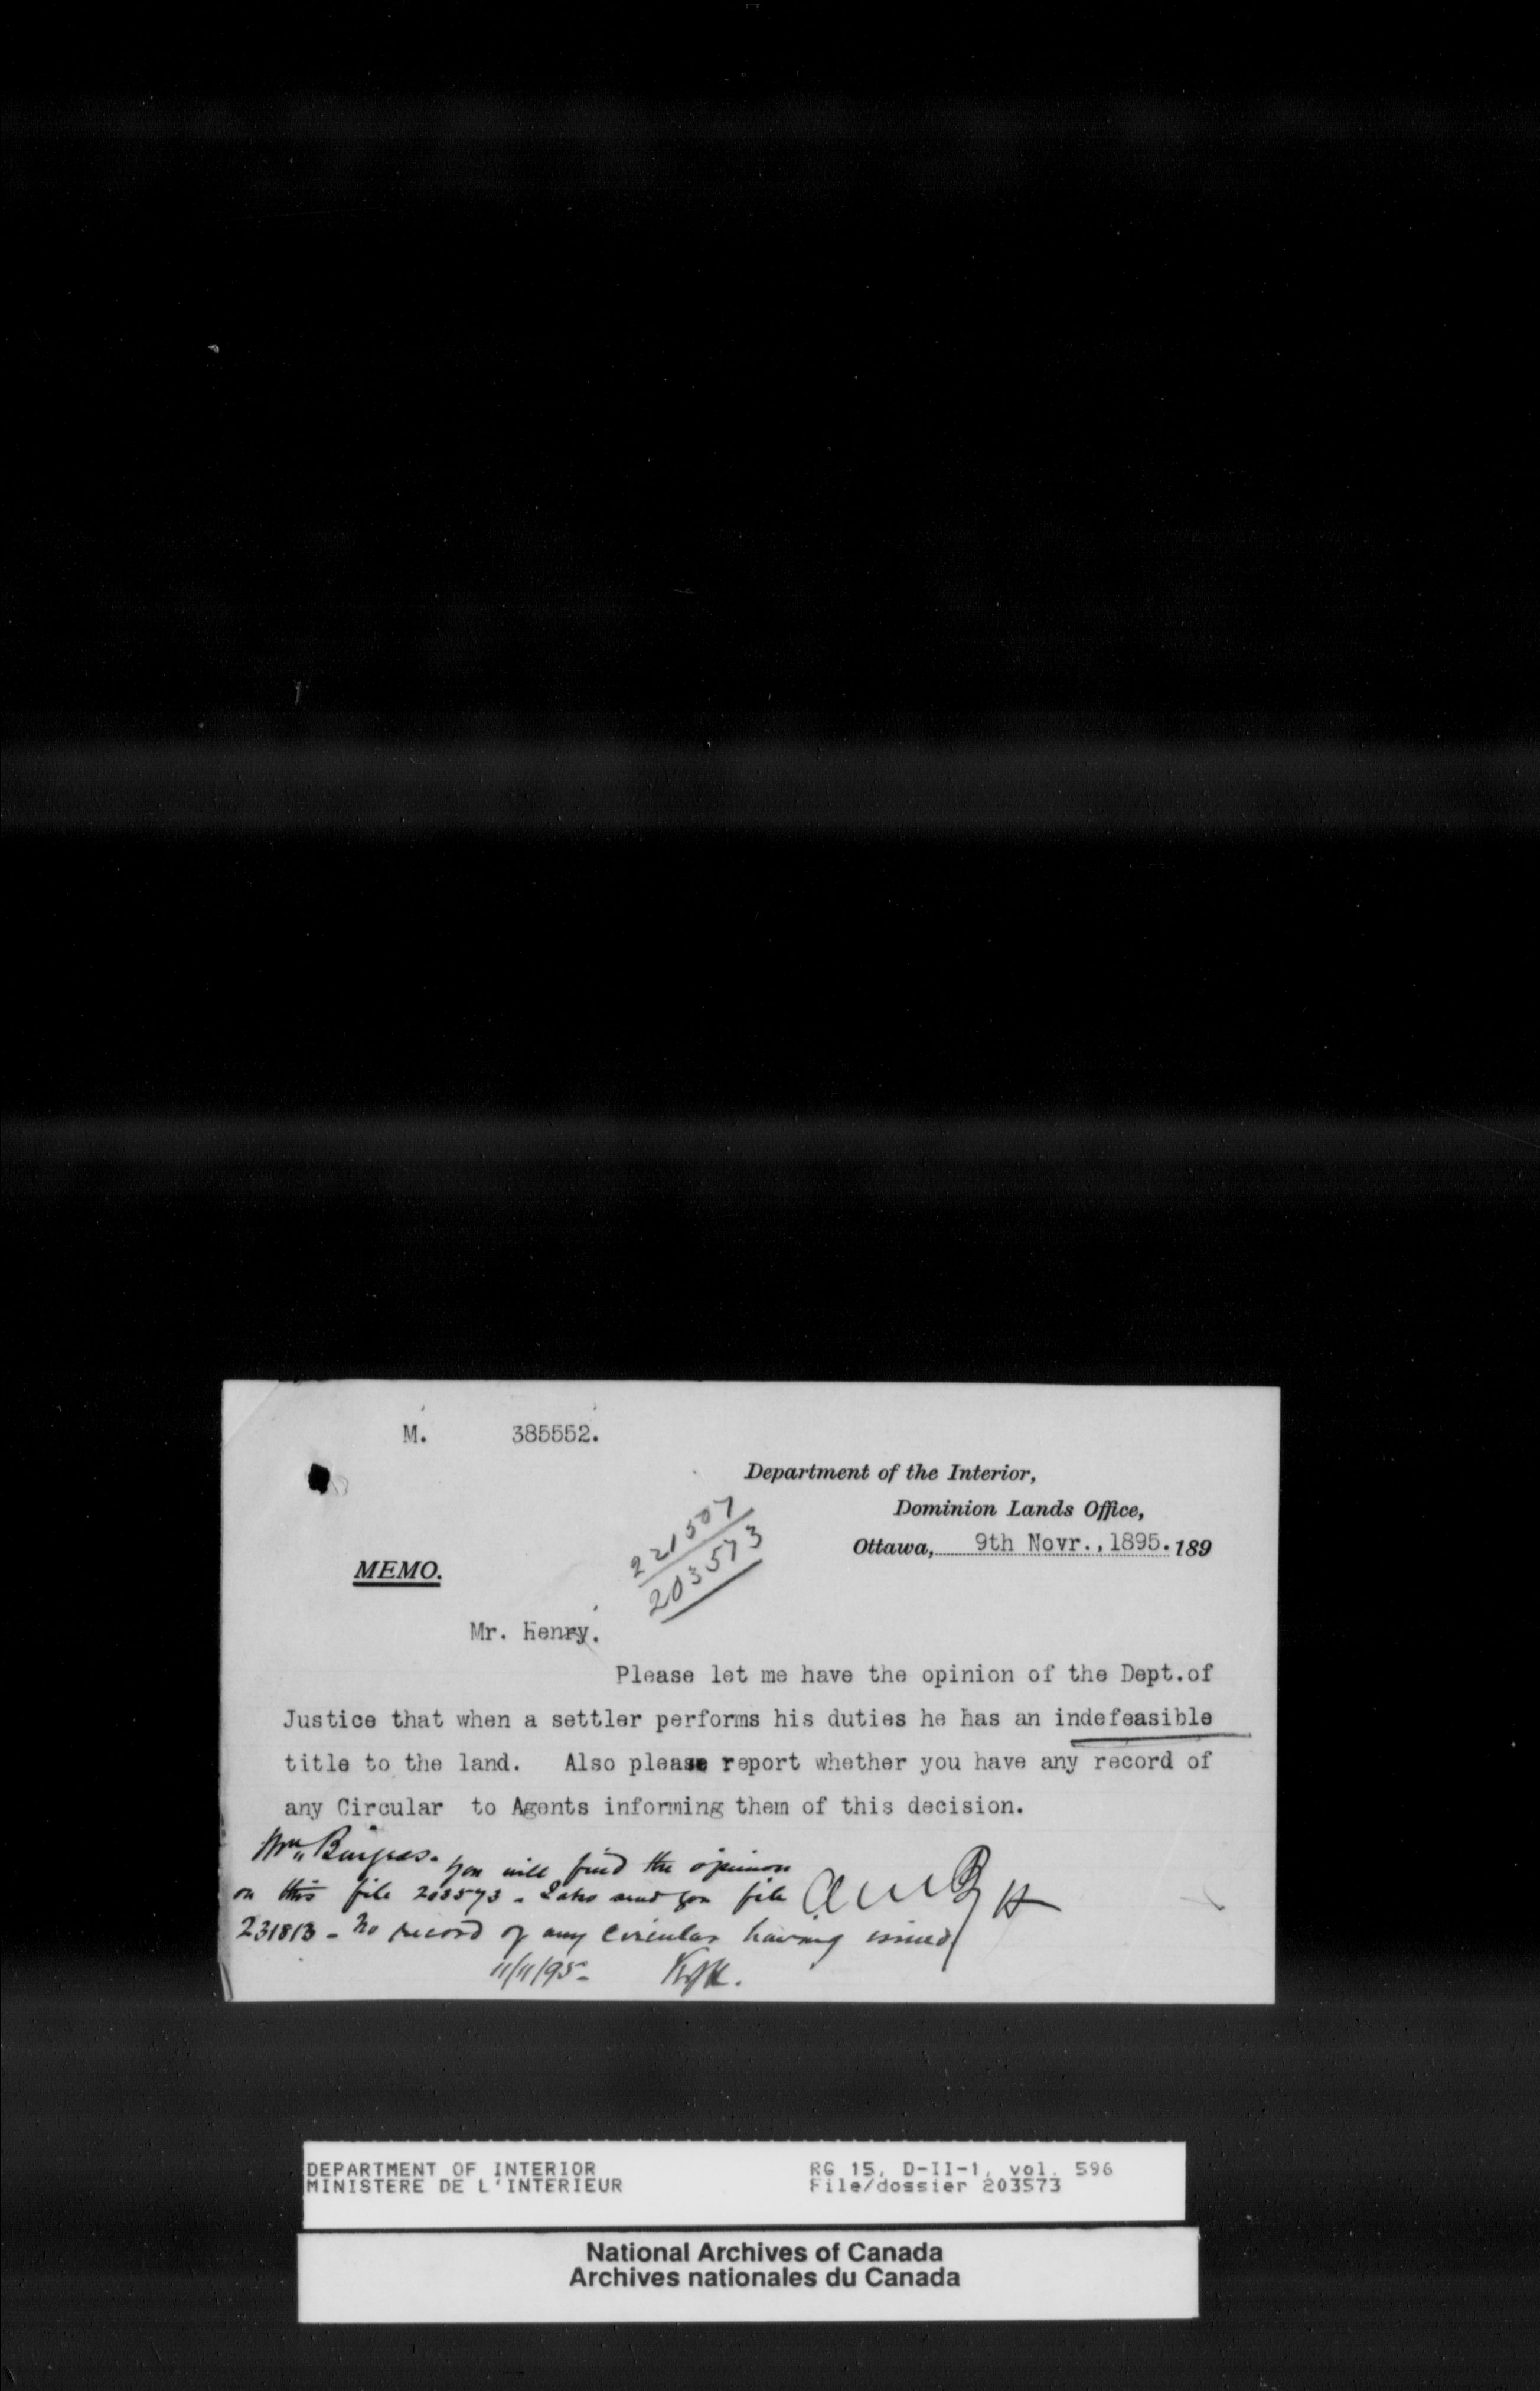 M. 385552.
Department of the Interior,
Dominion Lands Office,
Ottawa, 9th Novr., 1895. 189
221507
203573
MEMO.
Mr. Henry.
Please let me have the opinion of the Dept. of
Justice that when a settler performs his duties he has an indefeasible
title to the land. Also please report whether you have any record of
any Circular to Agents informing them of this decision.
Mr. Burgess. You will find the opinion
on this file 203573 - I also send you file
231813 - No record of any circular having issued
11/11/95 -
DEPARTMENT OF INTERIOR
MINISTERE DE L'INTERIEUR
RG 15, D-II-1, vol. 596
File/dossier 203573
National Archives of Canada
Archives nationales du Canada